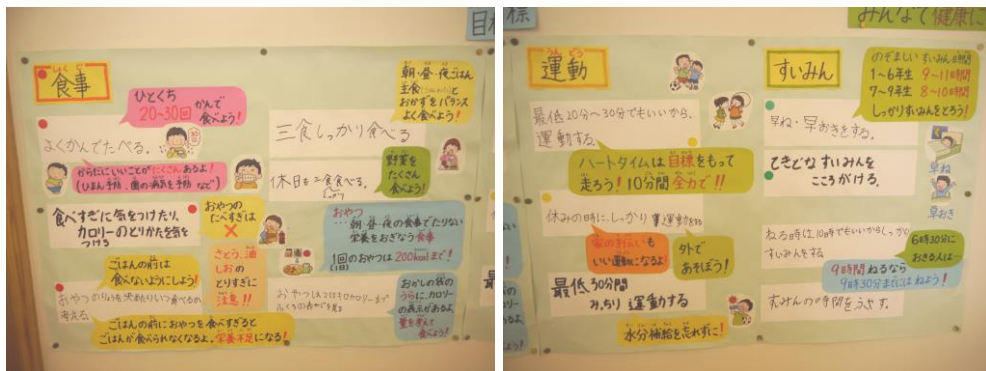 目標
食事
ひとくち
20〜30回 かんで
食べよう!
朝・昼・夜ごはん
主食と
おかずをバランス
よく食べよう!
よくかんでたべる。
三食しっかり食べる
からだにいいことがたくさんあるよ!
(ひまん予防、歯の病気を予防 など)
野菜を
たくさん
食べよう!
休日も三食食べる。
食べすぎに気をつけたり、
カロリーのとりかたを気を
つける
おやつの
たべすぎは
×
おやつ
…朝・昼・夜の食事でたりない
栄養をおぎなう食事
1回のおやつは200kcalまで!
(1日)
ごはんの前は
食べないようにしよう!
さとう、油
しおの
とりすぎに
注意!!
考える。
おかしの袋の
うらに、カロリー
の表示があるよ。
量を考えて
食べよう!
ごはんの前におやつを食べすぎると
ごはんが食べられなくなるよ。栄養不足になる!
標
みんなで健康に
運動
すいみん
のぞましい すいみん時間
1〜6年生 9〜11時間
7〜9年生 8〜10時間
しっかりすいみんをとろう!
最低20分〜30分でもいいから、
運動する。
早ね・早おきをする。
ハートタイムは目標をもって
走ろう!10分間 全力で!!
てきどな すいみんを
こころがける。
早ね
早おき
休みの時に、しっかり運動する
家のお手伝いも
いい運動になるよ!
外で
あそぼう!
ねる時は、10時でもいいからしっかり
すいみんをする
6時30分に
おきる人は…
9時間ねるなら
9時30分までにはねよう!
最低30分間
みっちり 運動する
すいみんの時間をふやす。
水分補給を忘れずに!